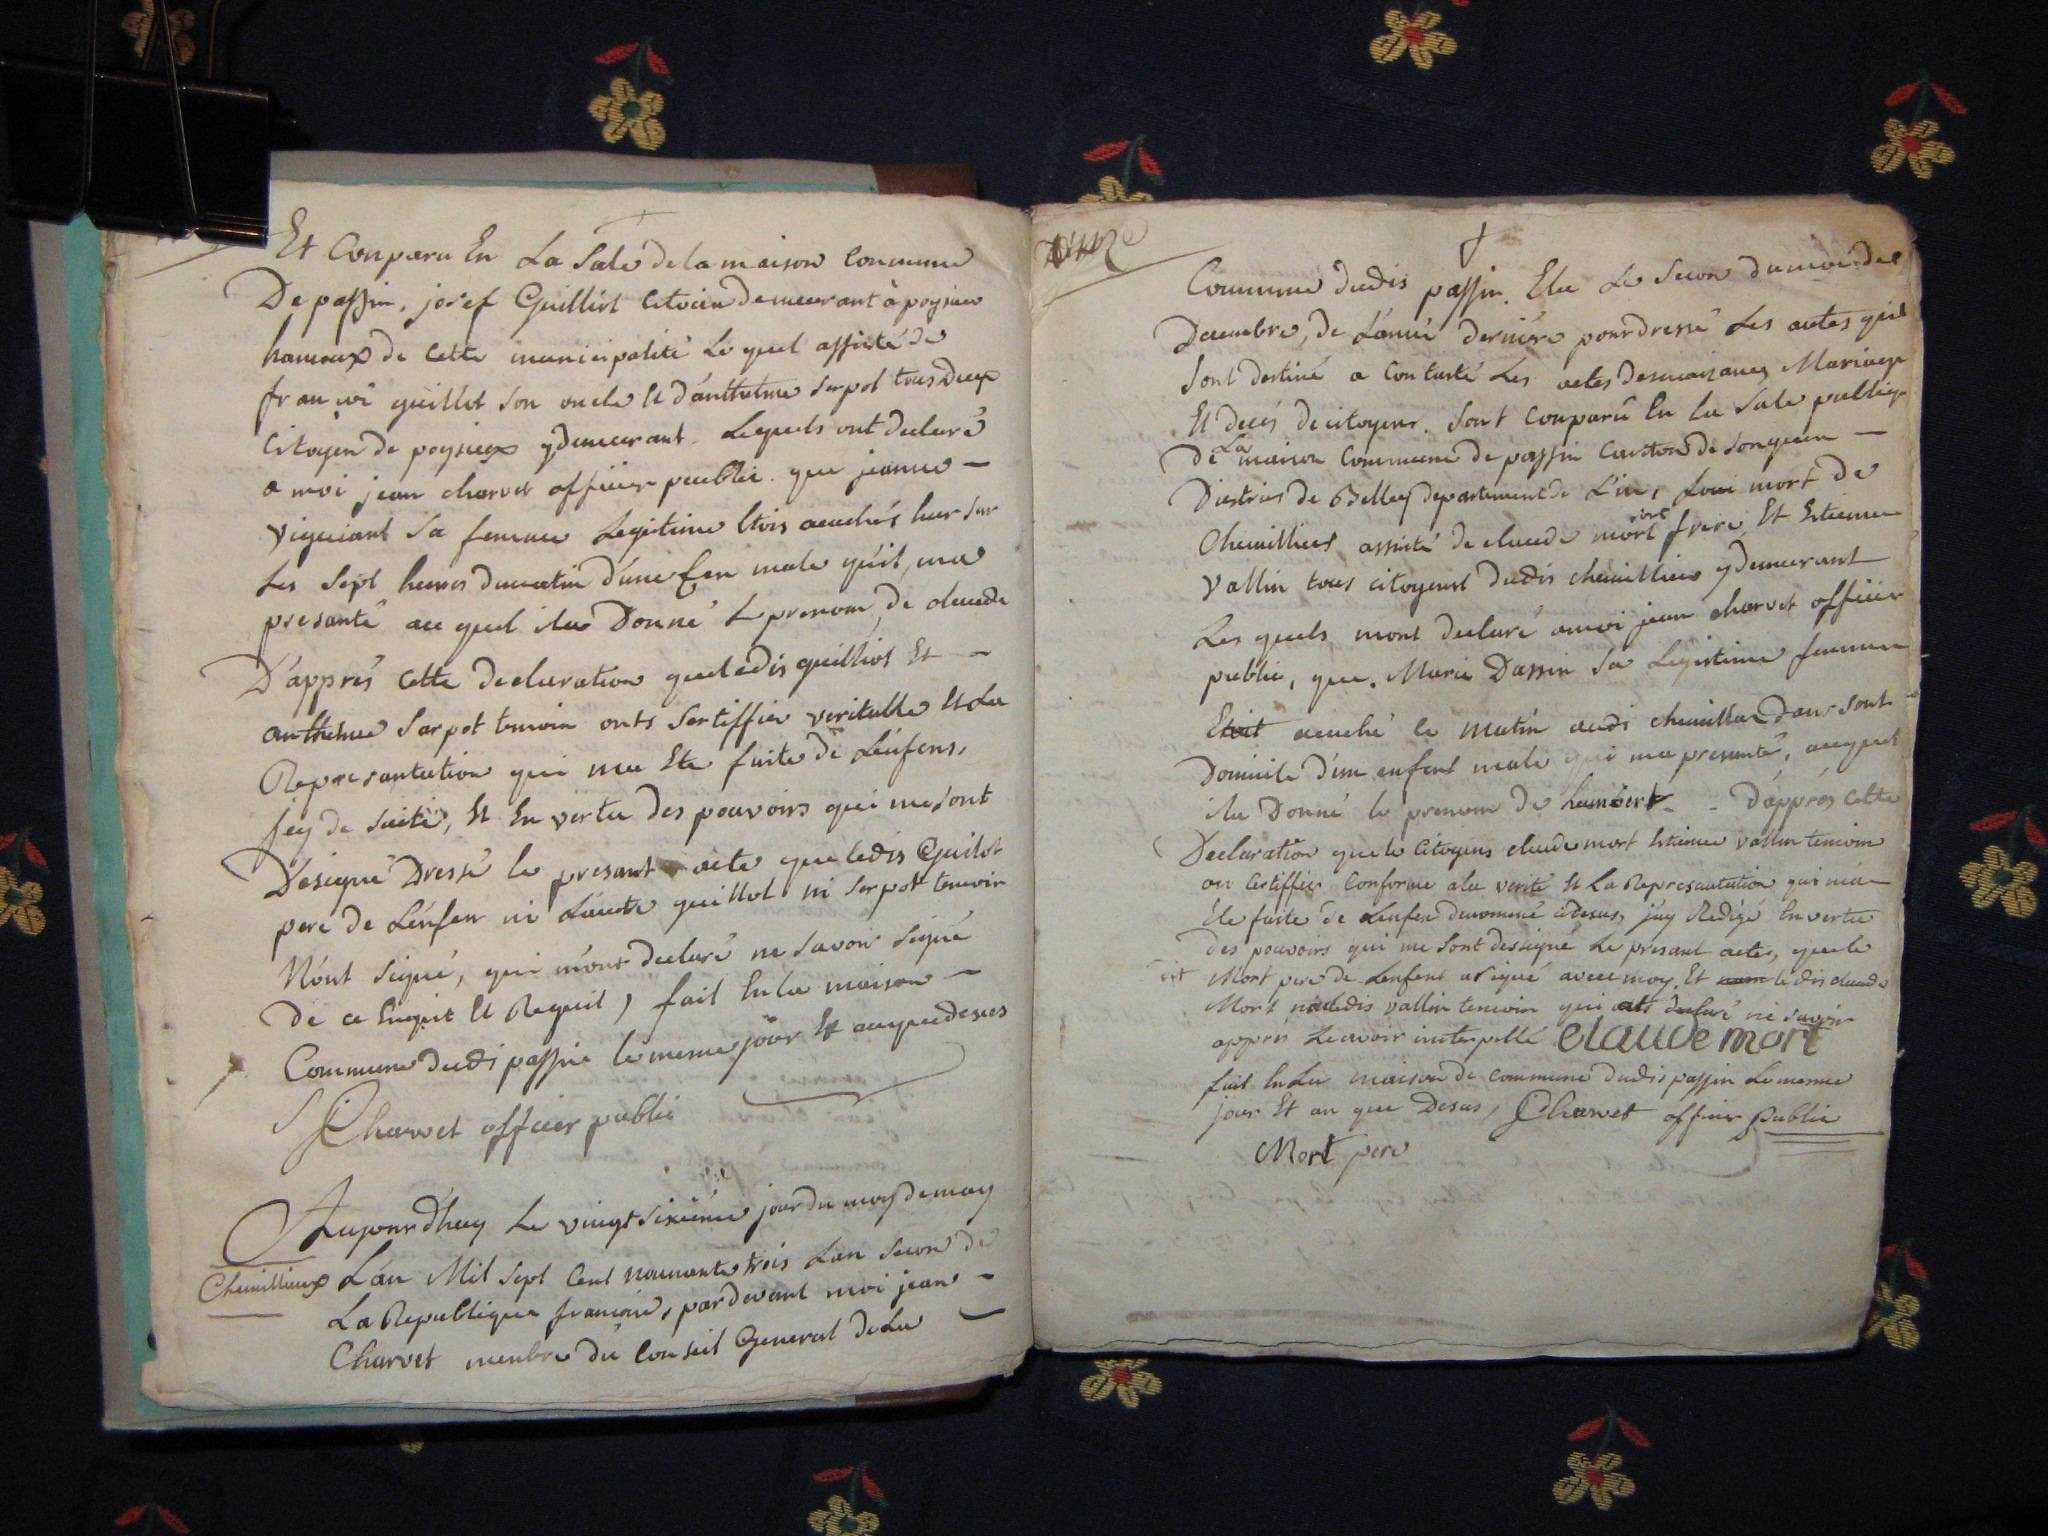 Et Conparu En La Sale de la maison Commune
De passin, josef Guilliot Citoien demeurant à poysieu
hameaux de Cette municipalité Le quel assisté de
francoi guillot son oncle Et d'anthelme serpol tous deux
Citoyen de poysieux y demeurant. Lequels ont declaré
a moi jean charvet officier peublic. que jeanne –
Viguiant sa femme Legitime Etois acuchés hier sur
Les sept heures du matin d'une Enfen male qu'il, ma
presanté au quel ila Donné Le prenom, de claude
D'apprés cette declaration que ledis guilliot Et –
anthelme Sarpot temoin onts Sertiffier veritable Et La
Represantation qui ma Ete faite de L'enfens,
jey de suite, Et En vertu des pouvoirs qui me sont
Desiqué Dressé le presant acte que ledis Guilot
pere de L'enfen ni L'autre guillot ni serpot temoin
N'ont signé, qui m'ont declaré ne savoir signé
de ce Enquit Et Requit, fait En la maison –
Commune dudi passin le meme jour Et an que desus
J Charvet officier publi
Aujourd'huy Le vingt sixiéme jour du moy de may
Cheuillieux L'an Mil sept Cent nonante trois L'an Secon de
La Republique francoise, par devant moi jean –
Charvet menbre du Conseil General de La
Commune dudis passin. Elu Le Secon du moi de
Decembre, de L'anné derniére pour dressé Les actes qui
Sont destiné a Contasté Les actes des naisances Mariage
Et decés de citoyens. Sont Conparu En La Sale publique
De La maison Commune de passin Canton de Songieu –
Districs de Belley departement de L'in, Loui mort de
Cheuillieux assisté de claude mort sont frere Et Etienne
Vallin tous citoyent dudis cheuillieu y demeurant
Les quels mont declaré a moi jean charvet officier
public, que. Marie Dassin Sa Legistime femme
Etoit acuché le matin audi cheuillieu dans sont
Domicile d'un enfent male qui ma presanté, auquel
ila Donné le prenom de Lambert - - D'apprés cette
Declaration que le Citoyens claude mort Etienne vallin temoin
on Certiffier Conforme a la verité Et La Represantation qui m'a
éte faite de L'enfen denommé cidesus, j'ay Redigé En vertu
des pouvoirs qui me Sont dessigné Le presant acte, que le
dit Mort pere de L'enfent a signé avec moy. Et le dis claude
Mort ni ledis vallin temoin qui declaré ne savoir
apprés Le avoir interpellé claude mort
fait En La maison de commune dudis passin Le meme
jour Et an que Desus, J Charvet officier Public
Mort pere